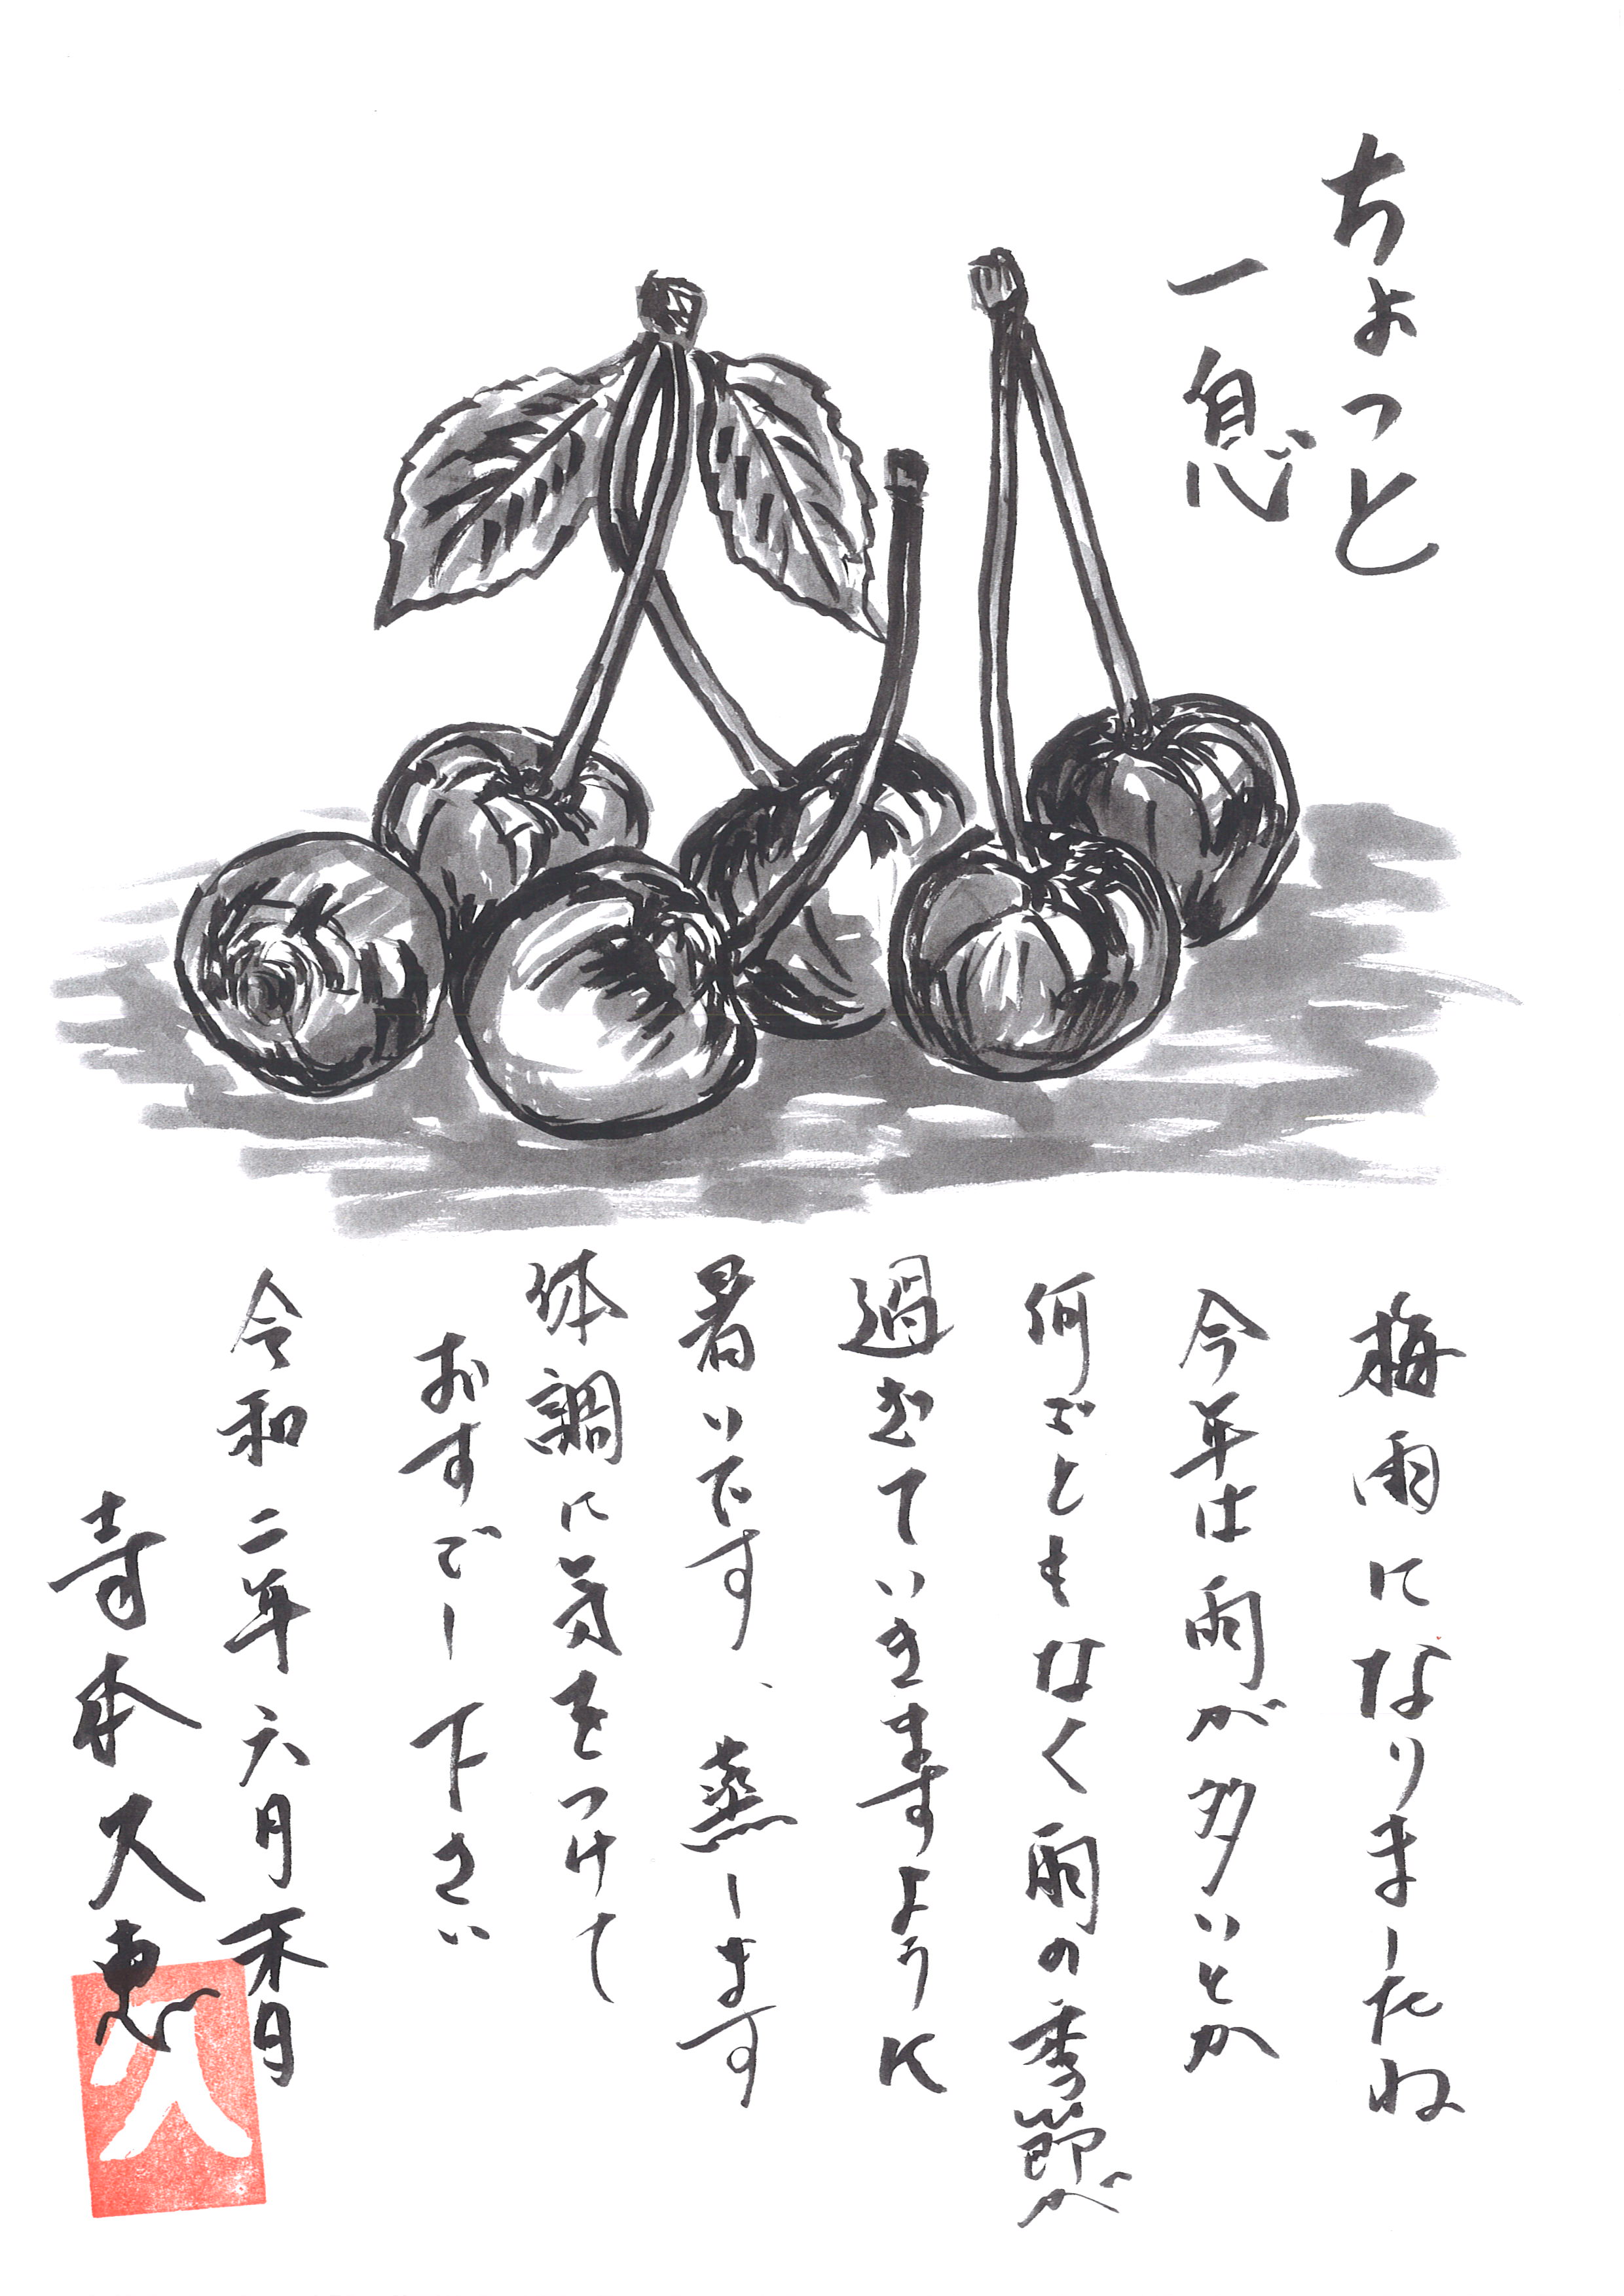 ちょっと
一息
梅雨になりましたね
今年は雨が多いとか
何ごともなく雨の季節が
過ぎていきますように
暑いです、蒸します
体調に気をつけて
おすごし下さい
令和二年六月
寺本久恵
久